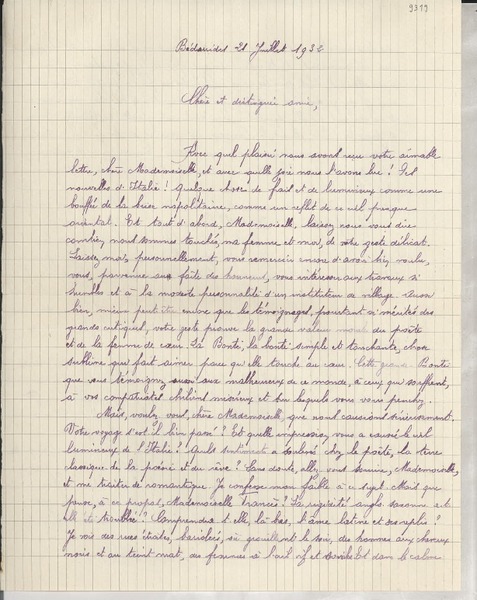 9319
Bédarrides 21 Juillet 1932
Chère et distinguée amie,
Avec quel plaisir nous avons reçu votre aimable
lettre, chère Mademoiselle, et avec quelle joie nous l'avons lue ! Des
nouvelles d'Italie ! Quelque chose de frais et de lumineux comme une
bouffée de la baie napolitaine, comme un reflet de ce ciel presque
oriental. Et tout d'abord, Mademoiselle, laissez nous vous dire
combien nous sommes touchés, ma femme et moi, de votre geste délicat.
Laissez moi, personnellement, vous remercier encore d'avoir bien voulu,
vous, parvenue au faîte des honneurs, vous intéresser aux travaux si
humbles et à la modeste personnalité d'un instituteur de village. Aussi
bien, mieux peut être encore que les témoignages, pourtant si mérités des
grands critiques, votre geste prouve la grande valeur morale du poète
et de la femme de cœur. La Bonté, la bonté simple et touchante, chose
sublime qui fait aimer parce qu'elle touche au cœur ! Cette grande Bonté
que vous témoignez aussi aux malheureux de ce monde, à ceux qui souffrent,
à vos compatriotes chiliens miséreux et sur lesquels vous vous penchez.
Mais, voulez vous, chère Mademoiselle, que nous causions sérieusement.
Votre voyage s'est il bien passé ? Et quelle impression vous a causée le ciel
lumineux de l'Italie ? Quels sentiments a soulevé chez le poète, la terre
classique de la poésie et du rêve ? Sans doute, allez vous sourire, Mademoiselle,
et me traiter de romantique. Je confesse mon faible à ce sujet. Mais que
pense, à ce propos, Mademoiselle Francès ? La rigidité anglo saxonne a-t-
elle été troublée ? Comprendra-t-elle, là bas, l'âme latine et ses replis ?
Je vois des rues étroites, bariolées, où grouillent le soir, des hommes aux cheveux
noirs et au teint mat, des femmes à l'œil vif et Et dans le calme